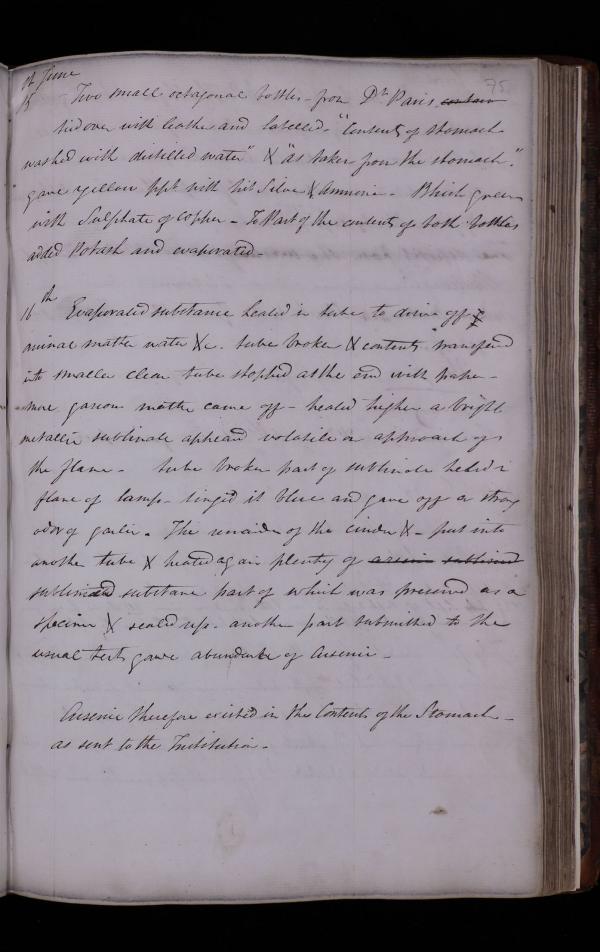 75
of June
15 Two small octagonal bottles - from Dr Paris contain
tied over with leather and labelled. "Contents of stomach
washed with distilled water" & "as taken from the stomach".
gave yellow ppt with Nit Silver & Ammonia - Bluish green
with Sulphate of Copper - To Part of the contents of both bottles
added Potash and evaporated -
16th Evaporated substance heated in tube to drive off
animal matter water &c. tube broken & contents transferred
into smaller clean tube stopped at the end with paper -
more gaseous matter came off - heated higher a bright
metallic sublimate appeared volatile on approach of
the flame - tube broken part of sublimate heated in
flame of lamp - tinged it blue and gave off a strong
odor of garlic. The remainder of the cinder &c - put into
another tube & heated again plenty of arsenic sublimed
sublimed substance part of which was preserved as a
specimen & sealed up. another part submitted to the
usual tests gave abundance of Arsenic -
Arsenic therefore existed in the Contents of the Stomach -
as sent to the Institution -